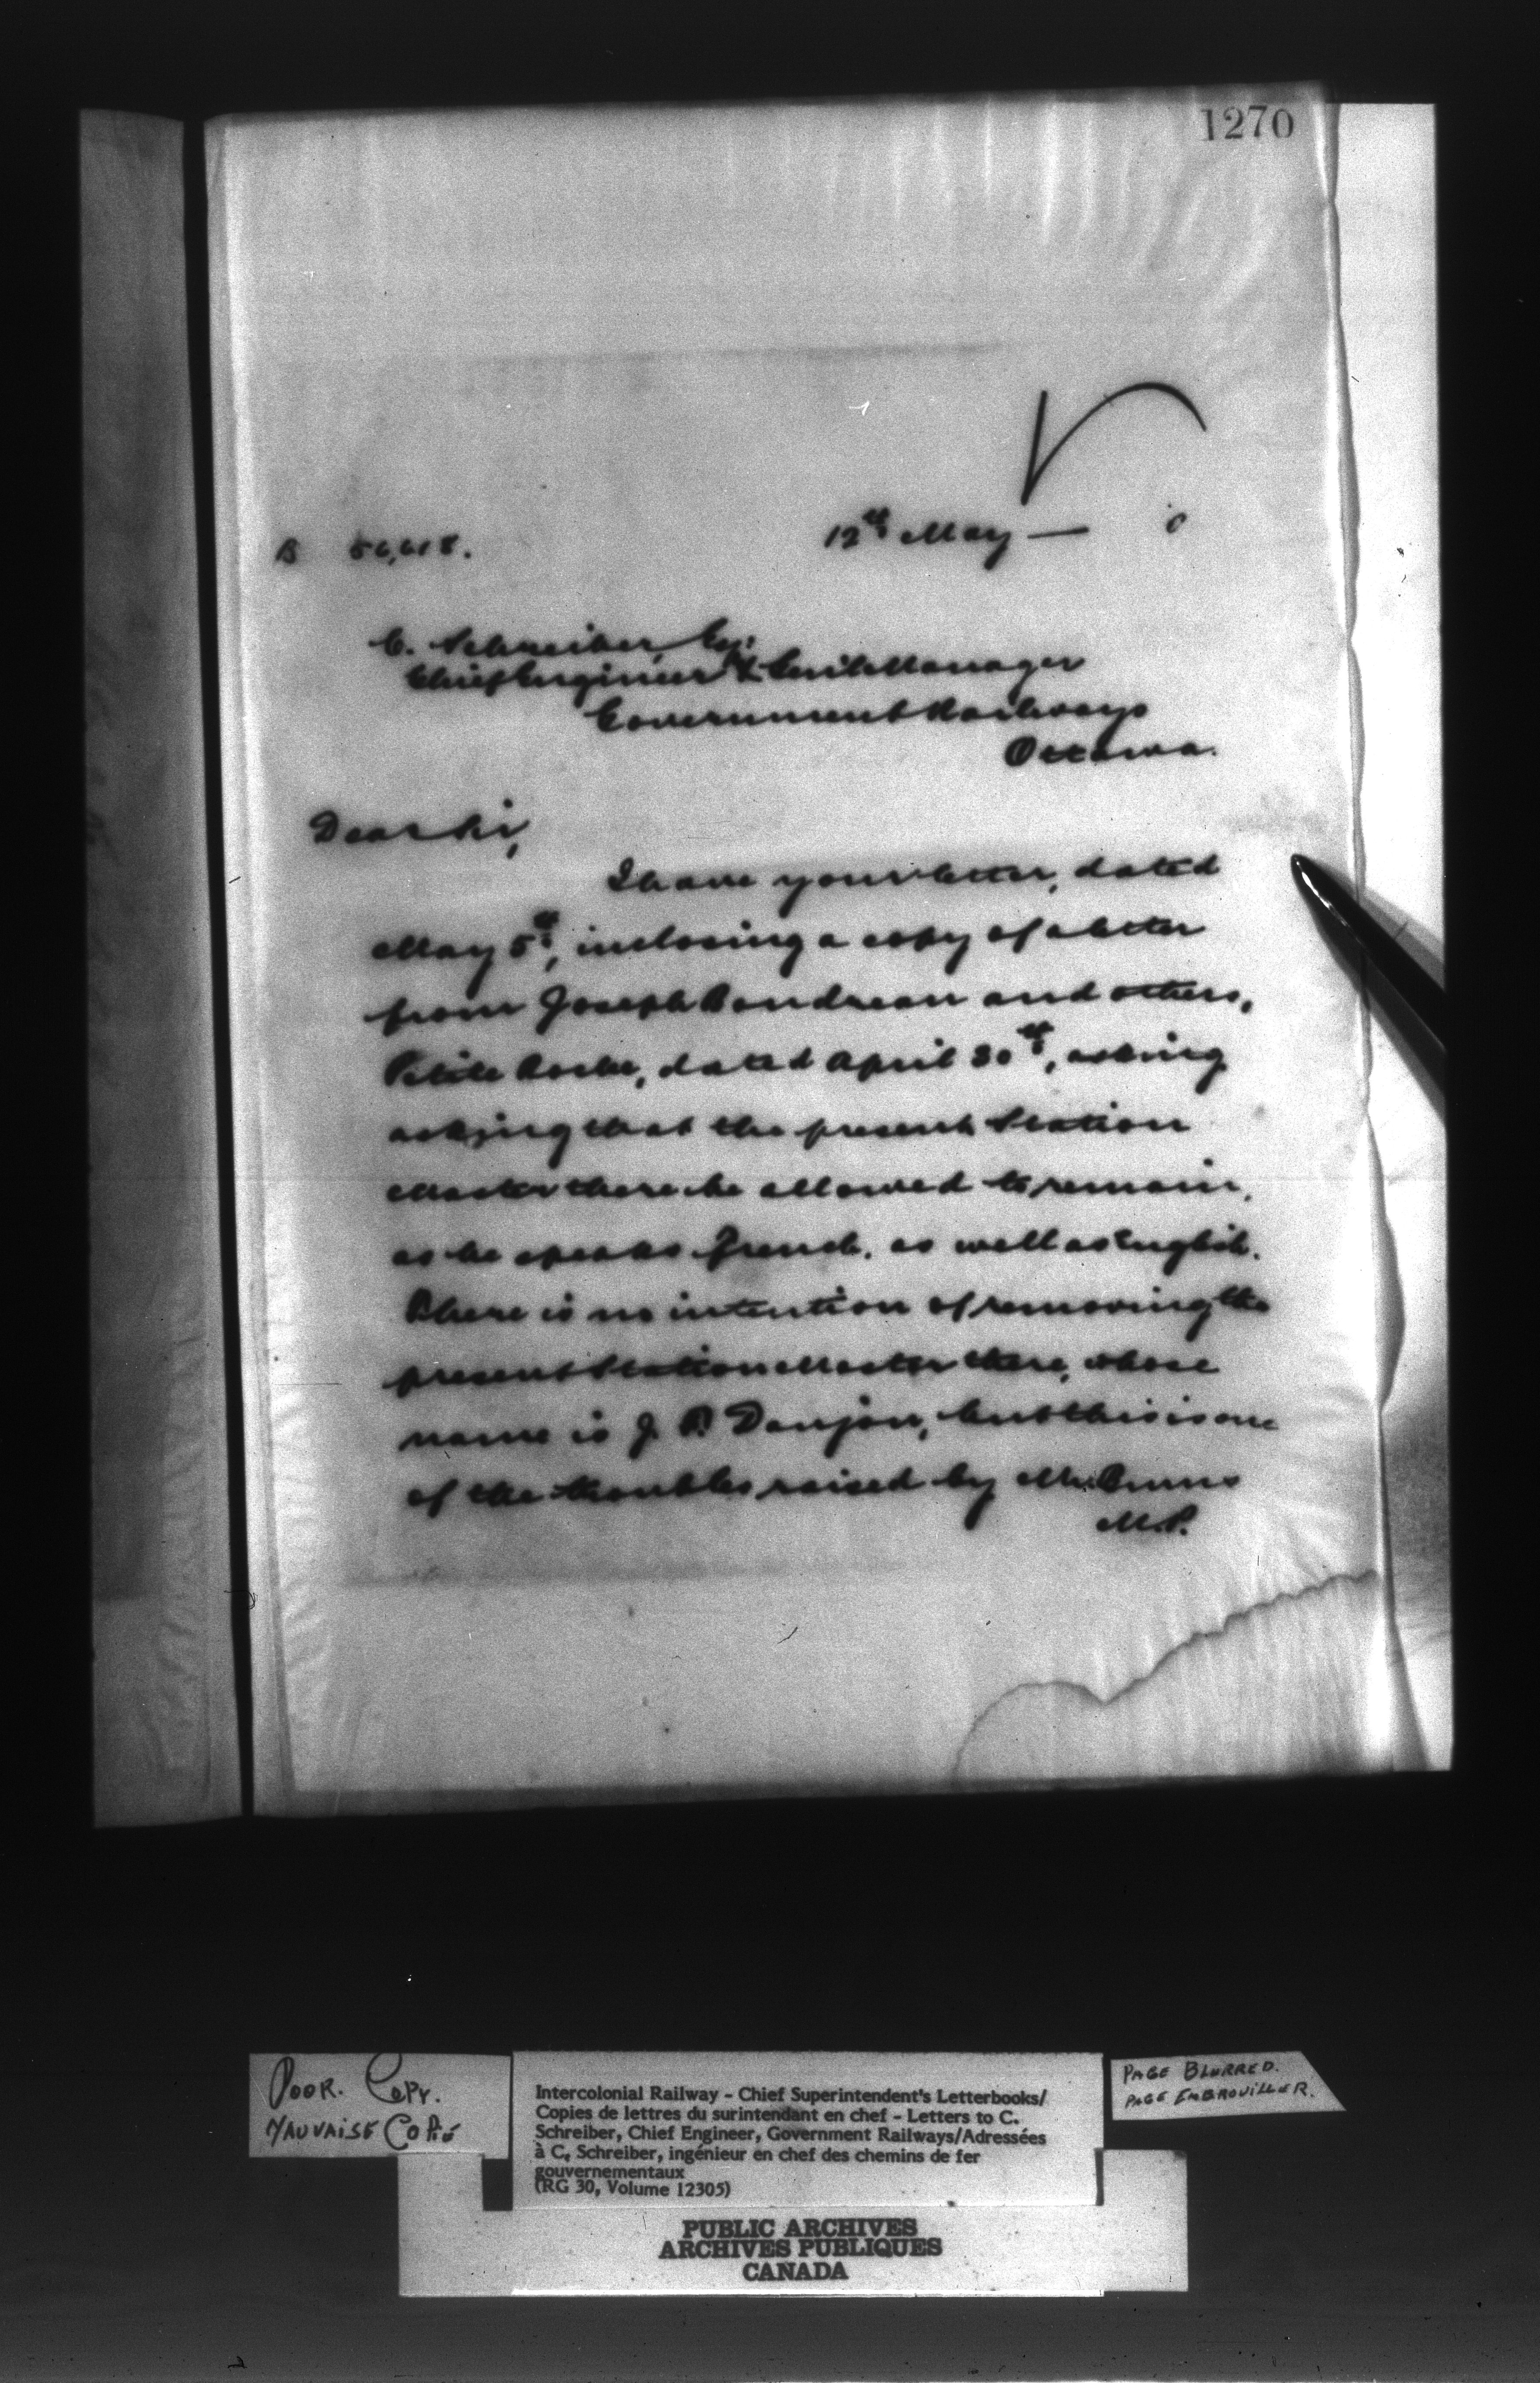 1270
12th May — 0
B 56,618.
C. Schreiber, Esq:
Chief Engineer & Genl Manager
Government Railways
Ottawa.
Dear Sir,
I have your letter, dated
May 5th, inclosing a copy of a letter
from Joseph Boudreau and others,
Petite Roche, dated April 30th, asking
asking that the present Station
Master there be allowed to remain,
as he speaks French, as well as English.
There is no intention of removing the
present Station Master there, whose
name is J. P. Doujon, but this is one
of the troubles raised by Mr. Burns
M.P.
POOR. COPY.
MAUVAISE COPIE
Intercolonial Railway - Chief Superintendent's Letterbooks/
Copies de lettres du surintendant en chef - Letters to C.
Schreiber, Chief Engineer, Government Railways/Adressées
à C. Schreiber, ingénieur en chef des chemins de fer
gouvernementaux
(RG 30, Volume 12305)
PAGE BLURRED.
PAGE EMBROUILLER.
PUBLIC ARCHIVES
ARCHIVES PUBLIQUES
CANADA